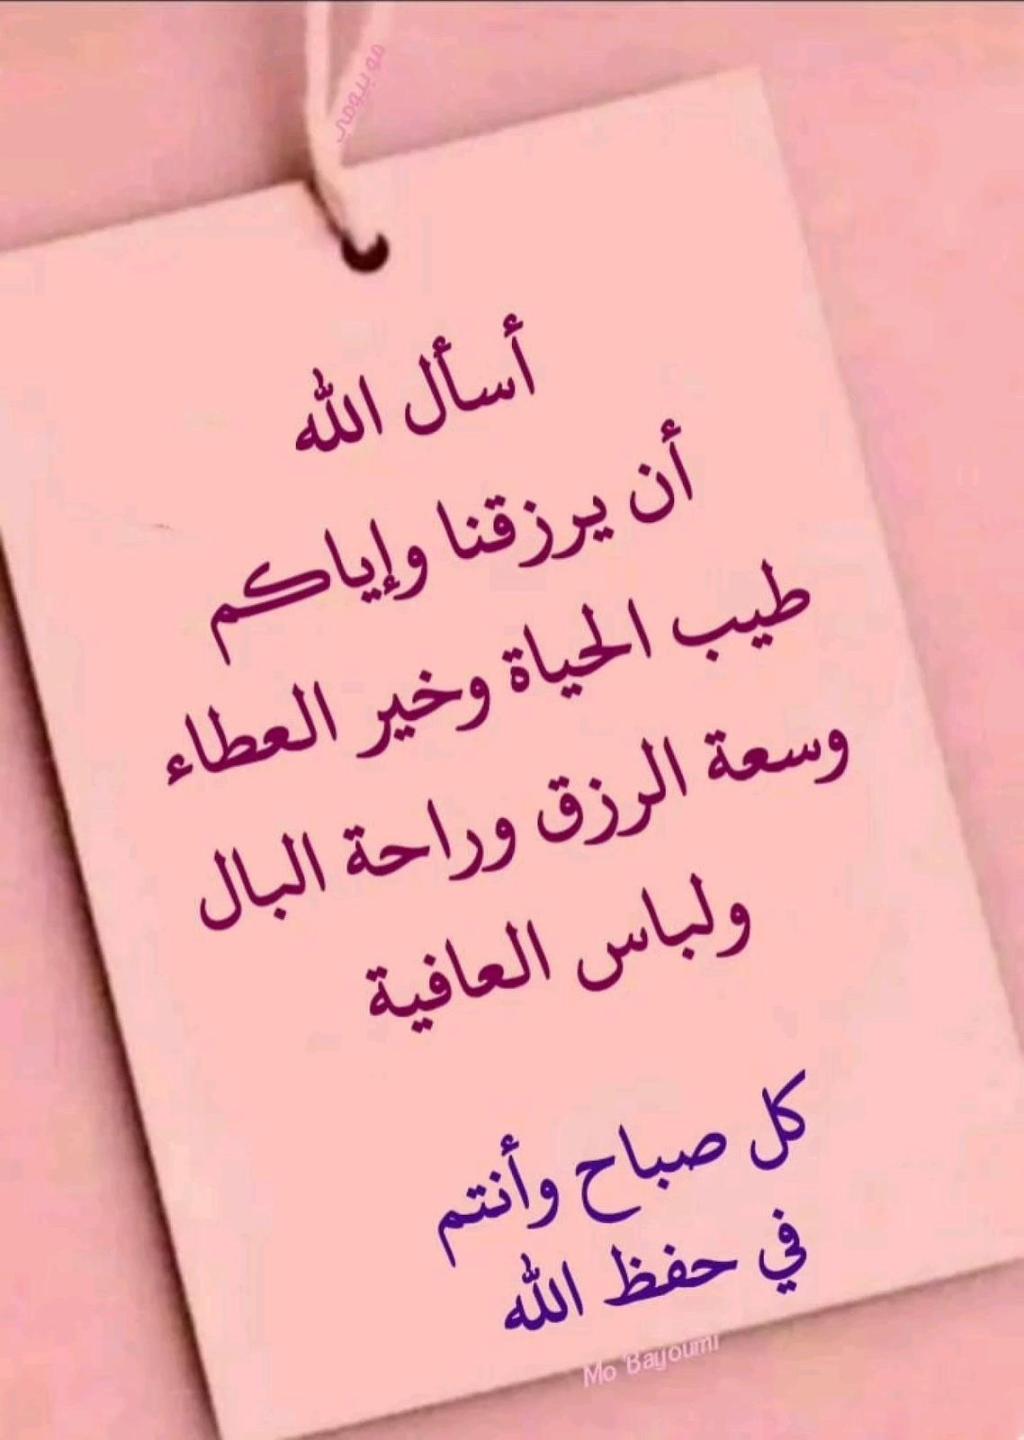 مو بيومي
أسأل الله
أن يرزقنا وإياكم
طيب الحياة وخير العطاء
وسعة الرزق وراحة البال
ولباس العافية
كل صباح وأنتم
في حفظ الله
Mo Bayoumi